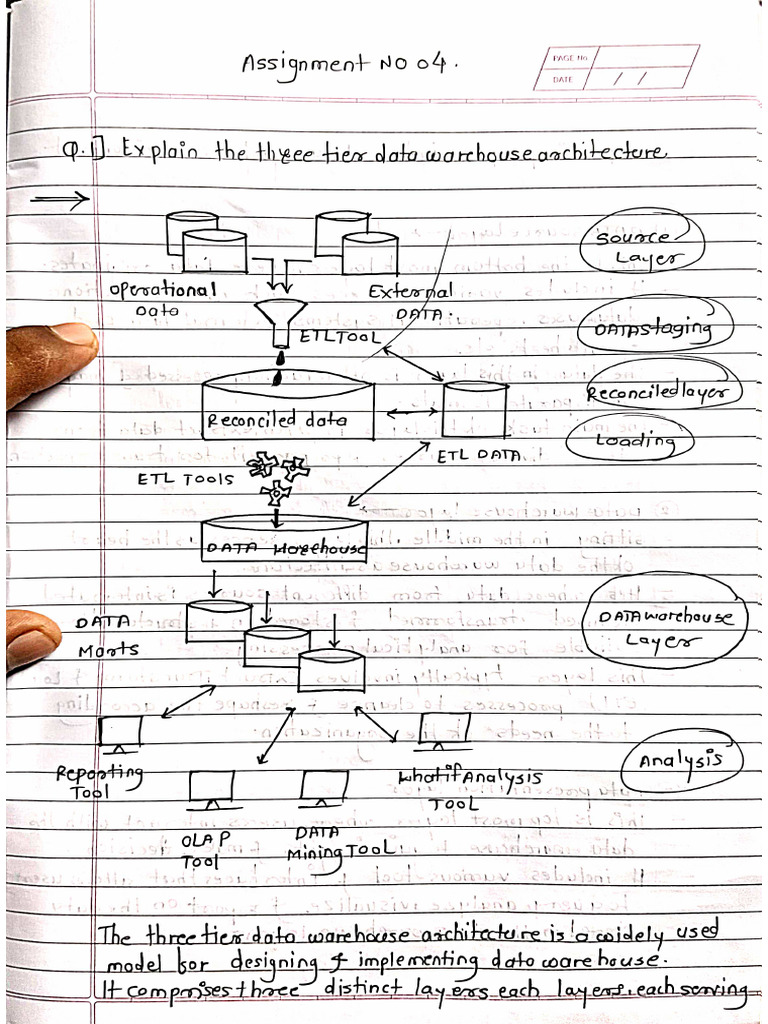 Assignment NO 04.
PAGE No.
DATE / /
Q.1]. Explain the three tier data warehouse architecture.
Source
Layer
Operational
Data
External
DATA.
ETL TOOL
DATA staging
Reconciled layer
Reconciled data
Loading
ETL DATA
ETL TOOLS
DATA Warehouse
DATA
Marts
DATA warehouse
Layer
Reporting
TOOL
OLAP
TOOL
DATA
Mining TOOL
what if Analysis
TOOL
Analysis
The three tier data warehouse architecture is a widely used
model for designing & implementing data warehouse.
It comprises three distinct layers each layers, each serving